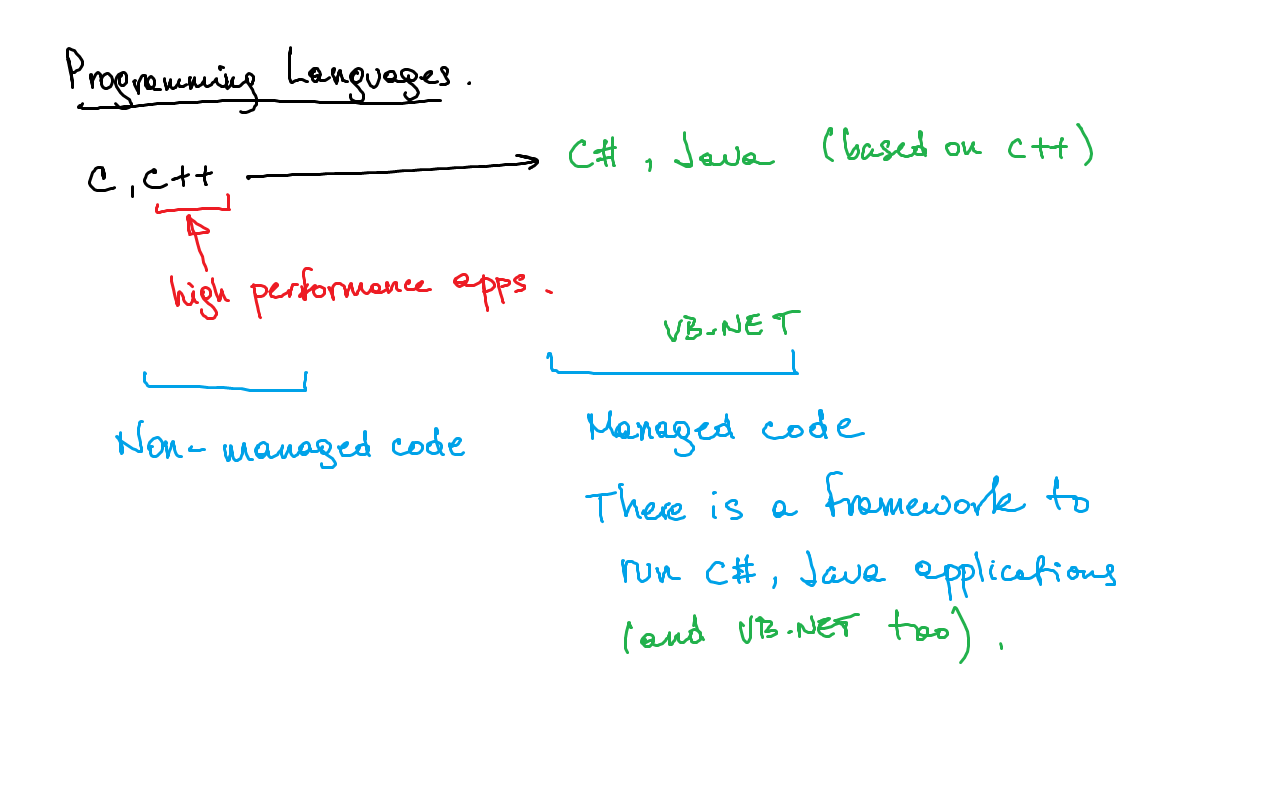 Programming Languages.
C, C++ C#, Java (based on C++)
high performance apps.
VB.NET
Non-managed code
Managed code
There is a framework to
run C#, Java applications
(and VB.NET too).